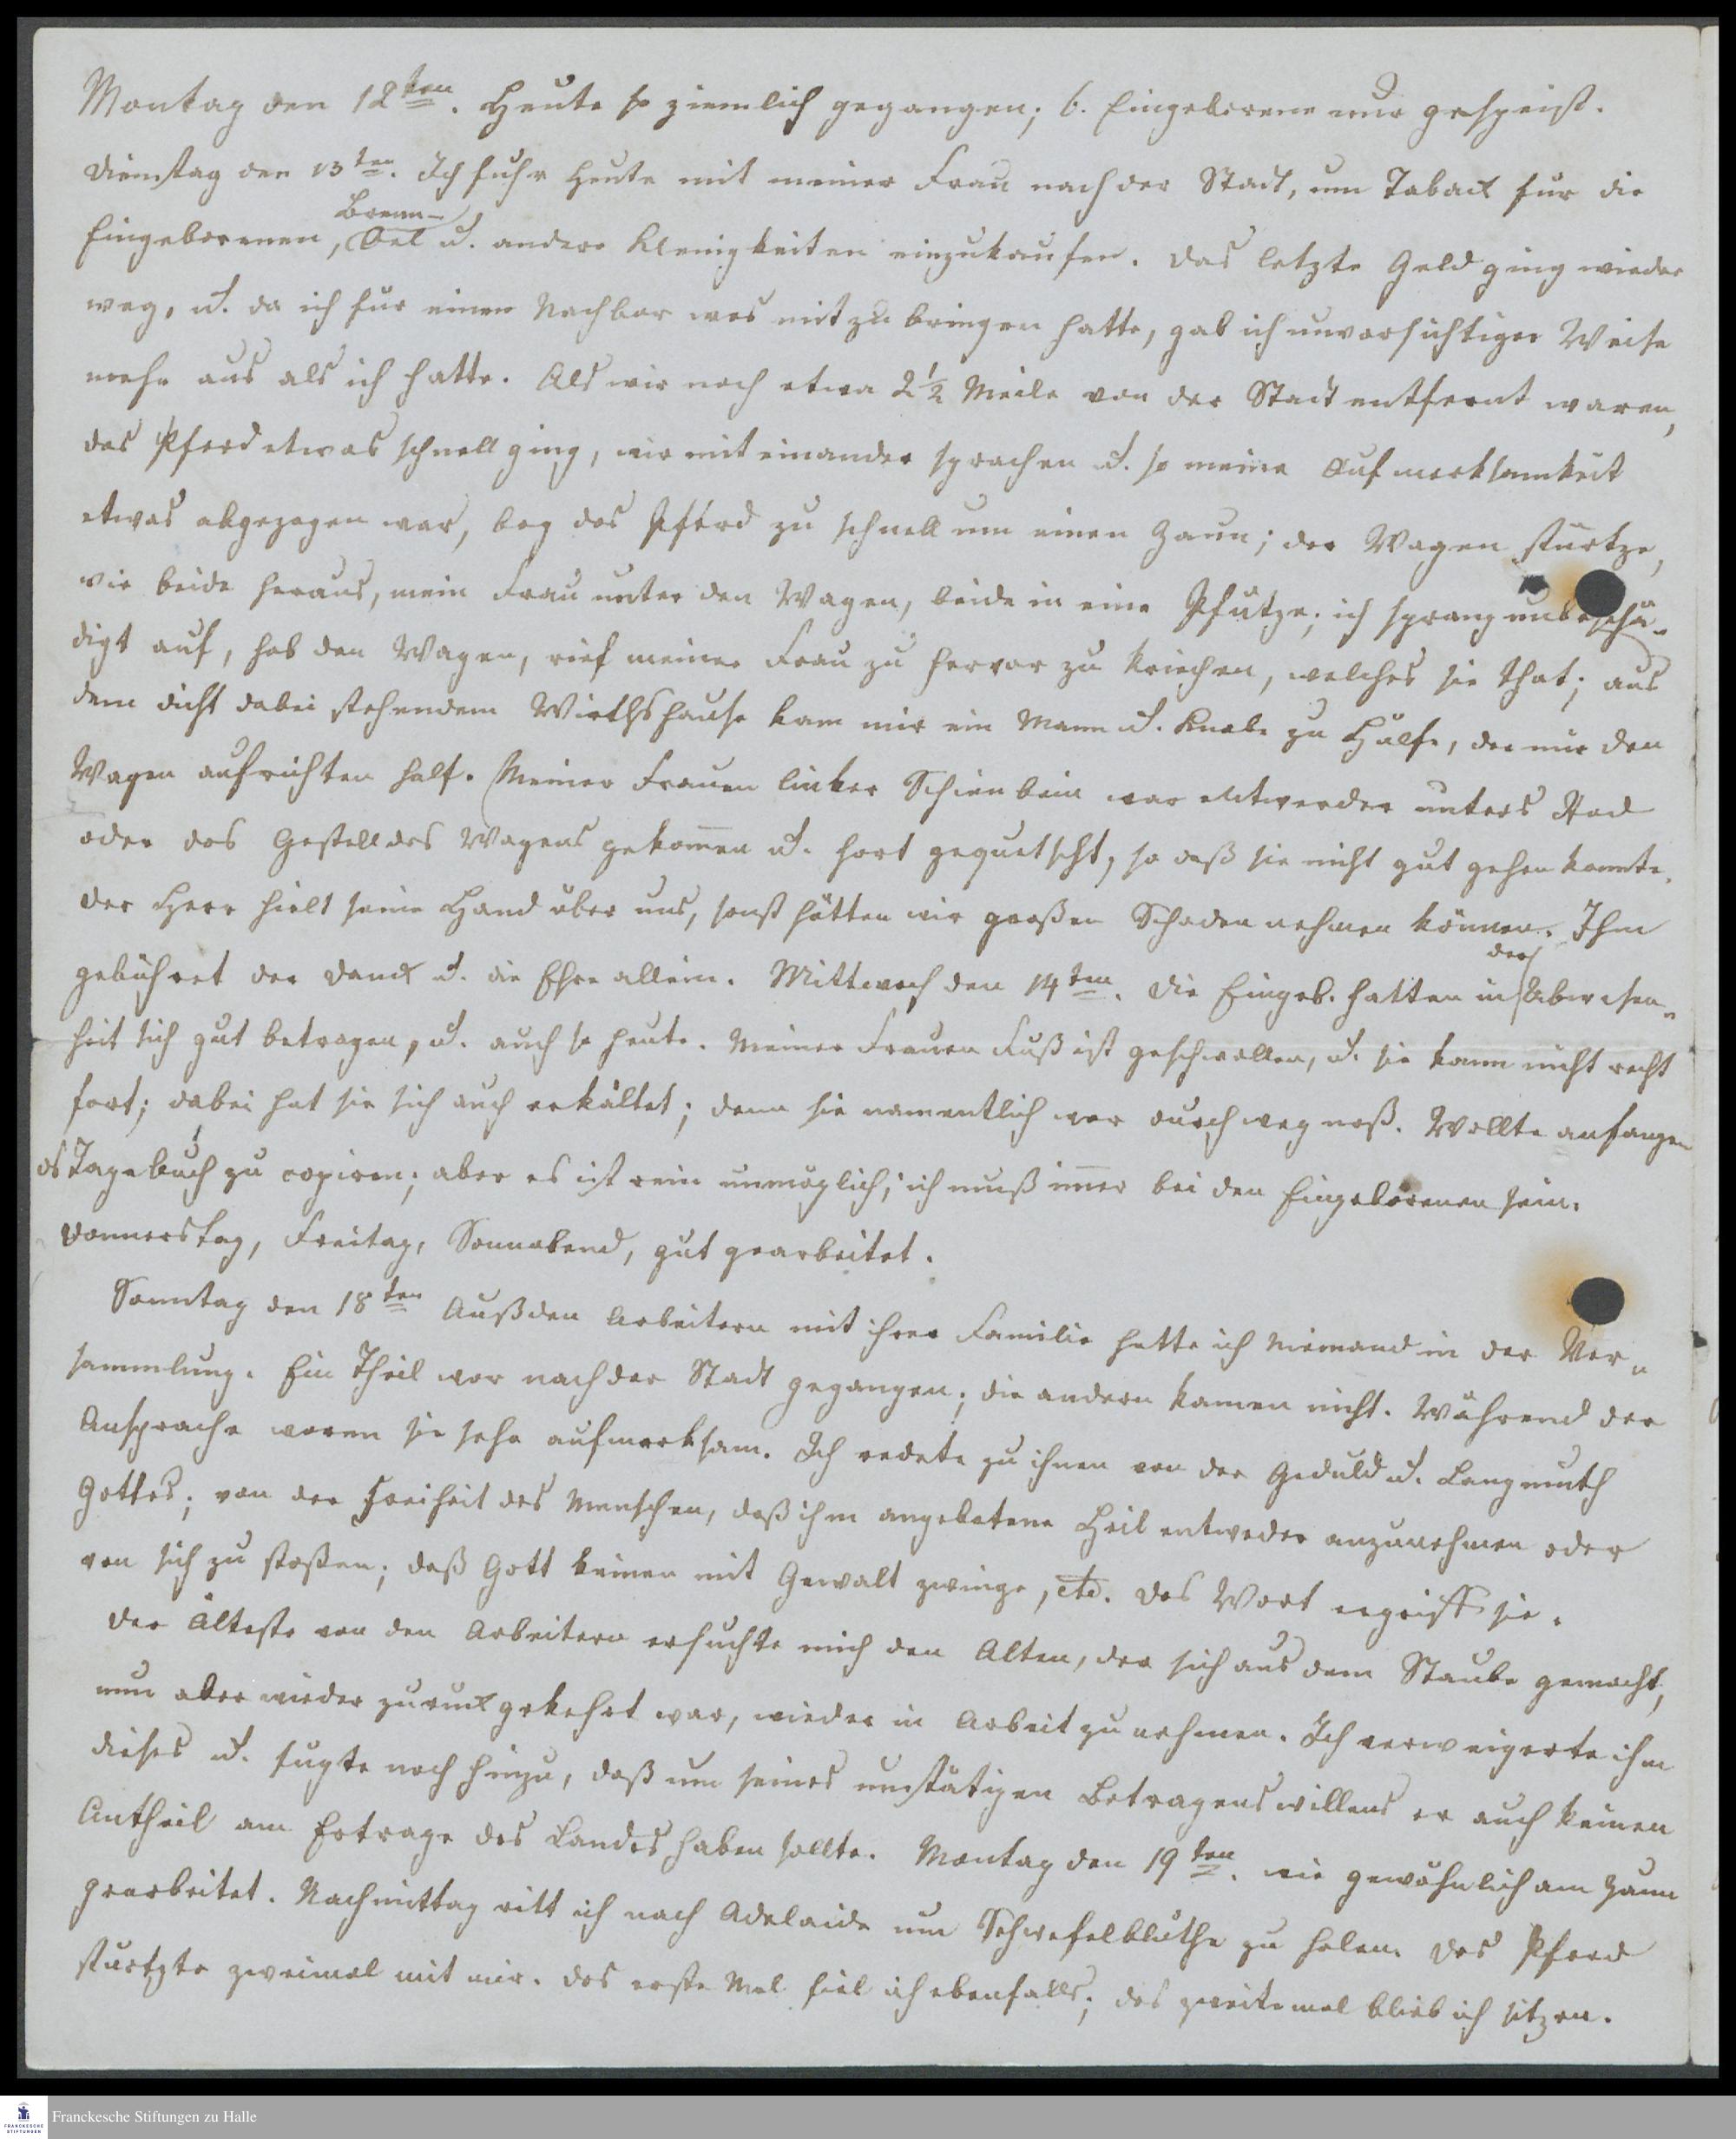 Montag den 12ten. Heute so ziemlich gegangen; 6. Eingeborene nur gespeist.
Dienstag den 13ten. Ich fuhr heute mit meiner Frau nach der Stadt, um Taback für die
Brenn-
Eingeborenen, Oel u. andere Kleinigkeiten einzukaufen. Das letzte Geld ging wieder
weg, u. da ich für einen Nachbar was mitzubringen hatte, gab ich unvorsichtiger Weise
mehr aus als ich hatte. Als wir noch etwa 2½ Meile von der Stadt entfernt waren,
das Pferd etwas schnell ging, wir mit einander sprachen u. so meine Aufmerksamkeit
etwas abgezogen war, bog das Pferd zu schnell um einen Zaun; der Wagen stürtze,
wir beide heraus, mein Frau unter den Wagen, beide in eine Pfütze; ich sprang unbeschä-
digt auf, hob den Wagen, rief meiner Frau zu hervor zu kriechen, welches sie that; aus
dem dicht dabei stehendem Wirthshause kam mir ein Mann u. Knabe zu Hülfe, der mir den
Wagen aufrichten half. Meiner Frauen linker Schienbein war entweder unters Rad
oder das Gestell des Wagens gekom̄en u. hart gequetscht, so daß sie nicht gut gehen konnte.
Der Herr hielt seine Hand über uns, sonst hätten wir großen Schaden nehmen können. Ihm
der
gebühret der Danck u. die Ehre allein. Mittwoch den 14ten. Die Eingeb. hatten in Abwesen-
heit sich gut betragen, u. auch so heute. Meiner Frauen Fuß ist geschwollen, u. sie kann nicht recht
fort; dabei hat sie sich auch erkältet; denn sie namentlich war durchweg naß. Wollte anfangen
ds Tagebuch zu copiren; aber es ist rein unmöglich; ich muß im̄er bei den Eingeborenen sein.
Donnerstag, Freitag, Sonnabend, gut gearbeitet.
Sonntag den 18ten Außden Arbeitern mit ihrer Familie hatte ich Niemand in der Ver-
sammlung. Ein Theil war nach der Stadt gegangen; die andern kamen nicht. Während der
Ansprache waren sie sehr aufmerksam. Ich redete zu ihnen von der Geduld u. Langmuth
Gottes; von der Freiheit des Menschen, daß ihm angebotene Heil entweder anzunehmen oder
von sich zu stoßen; daß Gott keinen mit Gewalt zwinge, etc. Das Wort ergriff sie.
Der Älteste von den Arbeitern ersuchte mich den Alten, der sich aus dem Staube gemacht,
nun aber wieder zurückgekehrt war, wieder in Arbeit zu nehmen. Ich verweigerte ihm
dieses u. fügte noch hinzu, daß um seines unstätigen Betragens willens er auch keinen
Antheil am Ertrage des Landes haben sollte. Montag den 19ten. wie gewöhnlich am Zaun
gearbeitet. Nachmittag ritt ich nach Adelaide um Schwefelblüthe zu holen. Das Pferd
stürtzte zweimal mit mir. Das erste Mal fiel ich ebenfalls; das zweite mal blieb ich sitzen.
FRANCKESCHE
STIFTUNGEN
Franckesche Stiftungen zu Halle